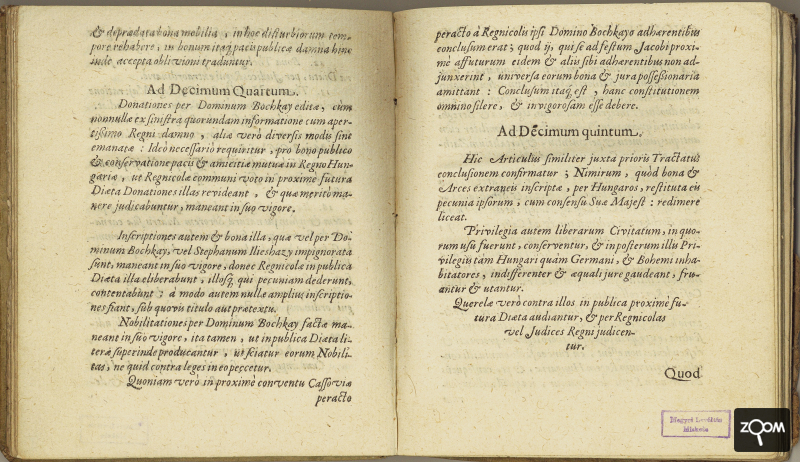 & deprædata bona mobilia, in hoc disturbiorum tem-
pore rehabere, in bonum itaq; pacis publicæ damna hinc
inde accepta oblivioni traduntur.
Ad Decimum Quartum.
Donationes per Dominum Bochkay editæ, cùm
nonnullæ ex sinistra quorundam informatione cum aper-
tissimo Regni damno, aliæ verò diversis modis sint
emanatæ: Ideò necessariò requiritur, pro bono publico
& conservatione pacis & amicitiæ mutuæ in Regno Hun-
gariæ, ut Regnicolæ communi voto in proxime futura
Diæta Donationes illas revideant, & quæ meritò ma-
nere judicabuntur, maneant in suo vigore.
Inscriptiones autem & bona illa, quæ vel per Do-
minum Bochkay, vel Stephanum Illieshazy impignorata
sunt, maneant in suo vigore, donec Regnicolæ in publica
Diæta illa eliberabunt, illosq; qui pecuniam dederunt,
contentabunt: à modo autem nullæ amplius inscriptio-
nes fiant, sub quovis titulo aut prætextu.
Nobilitationes per Dominum Bochkay factæ ma-
neant in suo vigore, ita tamen, ut in publica Diæta li-
teræ superinde producantur, ut sciatur eorum Nobili-
tas, ne quid contra leges in eo peccetur.
Quoniam verò in proximè conventu Cassoviæ
peracto
peracto à Regnicolis ipsi Domino Bochkayo adhærentibus
conclusum erat; quod ij, qui se ad festum Jacobi proxi-
mè affuturum eidem & aliis sibi adhærentibus non ad-
junxerint, universa eorum bona & jura possessionaria
amittant: Conclusum itaq; est, hanc constitutionem
omnino silere, & in vigorosam esse debere.
Ad Decimum quintum.
Hic Articulus similiter juxta prioris Tractatus
conclusionem confirmatur; Nimirum, quòd bona &
Arces extraneis inscriptæ, per Hungaros, restituta eis
pecunia ipsorum, cum consensu Suæ Majest: redimere
liceat.
Privilegia autem liberarum Civitatum, in quo-
rum usu fuerunt, conserventur, & inposterum illis Pri-
vilegiis tàm Hungari quàm Germani, & Bohemi inha-
bitatores, indifferenter & æquali jure gaudeant, fru-
antur & utantur.
Querelæ verò contra illos in publica proximè fu-
tura Diæta audiantur, & per Regnicolas
vel Judices Regni judicen-
tur.
Quod
ZOOM